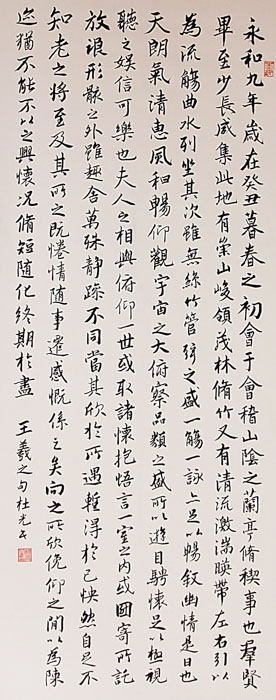 永和九年歲在癸丑暮春之初會于會稽山陰之蘭亭脩稧事也群賢
畢至少長咸集此地有崇山峻領茂林脩竹又有清流激湍暎帶左右引以
為流觴曲水列坐其次雖無絲竹管弦之盛一觴一詠亦足以暢敘幽情是日也
天朗氣清惠風和暢仰觀宇宙之大俯察品類之盛所以遊目騁懷足以極視
聽之娛信可樂也夫人之相與俯仰一世或取諸懷抱悟言一室之內或因寄所託
放浪形骸之外雖趣舍萬殊靜躁不同當其欣於所遇暫得於己怏然自足不
知老之將至及其所之既惓情隨事遷感慨係之矣向之所欣俛仰之間以為陳
迹猶不能不以之興懷況脩短隨化終期於盡 王羲之句杜光